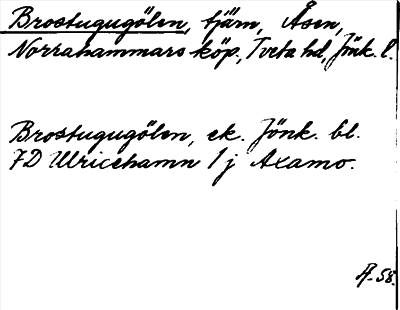 Brostugugölen, tjäm, Åsen,
Norrahammars köp., Tveta hd, Jönk. l.
Brostugugölen, ek. Jönk. bl.
7D Ulricehamn 1 j Axamo.
Å-58.